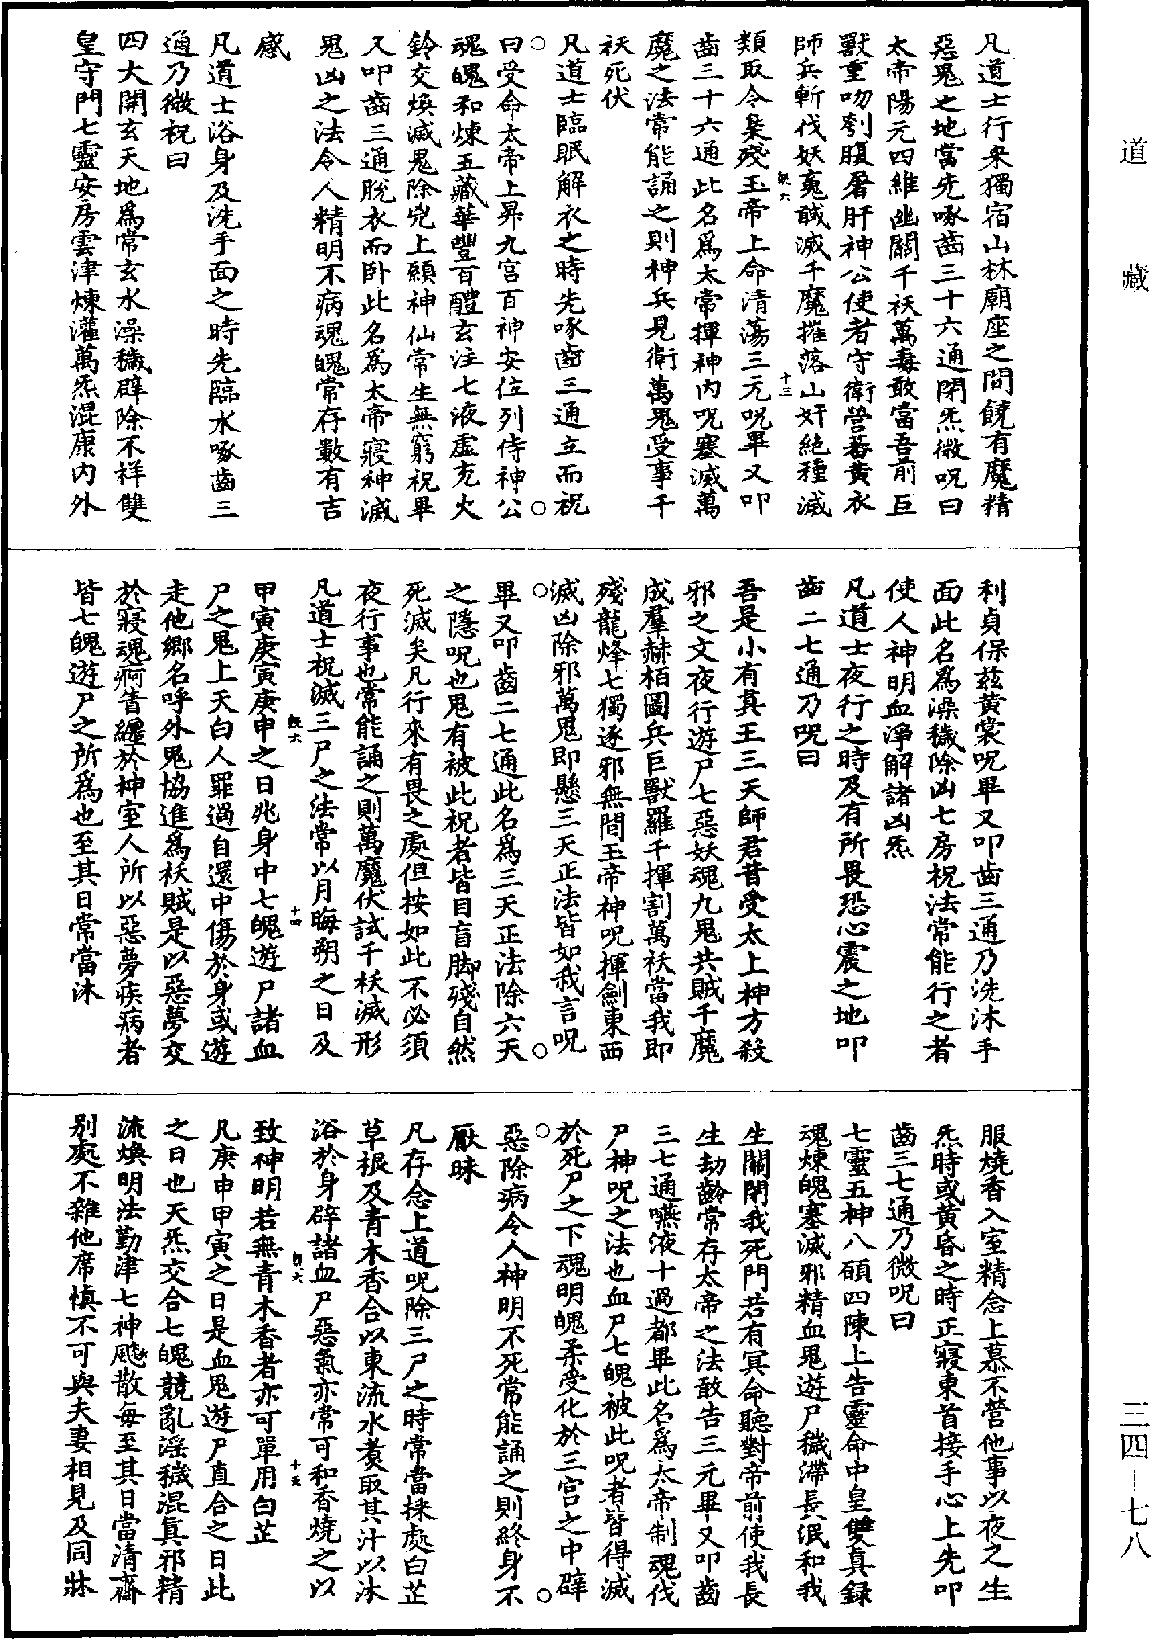 道藏
凡道士行來獨宿山林廟座之間饒有魔精
惡鬼之地當先啄齒三十六通閉炁微呪曰
太帝陽元四維幽關千祅萬毒敢當吾前巨
獸重吻刳腹屠肝神公使者守衛營蕃黃衣
師兵斬伐妖䰟馘滅千魔摧落山奸絕種滅
類取令梟殘玉帝上命清蕩三元呪畢又叩
齒三十六通此名爲太常揮神內呪塞滅萬
魔之法常能誦之則神兵見衛萬鬼受事千
祅死伏
凡道士臨眠解衣之時先啄齒三通立而祝
曰受命太帝上昇九宮百神安位列侍神公
魂魄和煉五藏華豐百醴玄注七液虛充火
鈴交煥滅鬼除兇上願神仙常生無窮祝畢
又叩齒三通脫衣而臥此名爲太帝寢神滅
鬼凶之法令人精明不病魂魄常存數有吉
感
凡道士浴身及洗手面之時先臨水啄齒三
通乃微祝曰
四大開玄天地爲常玄水澡穢辟除不祥雙
皇守門七靈安房雲津煉灌萬炁混康內外
利貞保茲黃裳呪畢又叩齒三通乃洗沐手
面此名爲澡穢除凶七房祝法常能行之者
使人神明血淨解諸凶炁
凡道士夜行之時及有所畏恐心震之地叩
齒二七通乃呪曰
吾是小有真王三天師君昔受太上神方殺
邪之文夜行遊尸七惡妖魂九鬼共賊千魔
成羣赫栢圖兵巨獸羅千揮割萬祅當我即
殘龍烽七獨逐邪無間玉帝神呪揮劍東西
滅凶除邪萬鬼即懸三天正法皆如我言呪
畢又叩齒二七通此名爲三天正法除六天
之隱呪也鬼有被此祝者皆目盲脚殘自然
死滅矣凡行來有畏之處但按如此不必須
夜行事也常能誦之則萬魔伏試千祅滅形
凡道士祝滅三尸之法常以月晦朔之日及
甲寅庚寅庚申之日兆身中七魄遊尸諸血
尸之鬼上天白人罪過自還中傷於身或遊
走他鄉名呼外鬼協進爲祅賊是以惡夢交
於寢魂痾眚纏於神室人所以惡夢疾病者
皆七魄遊尸之所爲也至其日常當沐
服燒香入室精念上慕不營他事以夜之生
炁時或黃昏之時正寢東首接手心上先叩
齒三七通乃微呪曰
七靈五神八碩四陳上告靈命中皇雙真錄
魂煉魄塞滅邪精血鬼遊尸穢滯長泯和我
生關閉我死門若有冥命聽對帝前使我長
生劫齡常存太帝之法敢告三元畢又叩齒
三七通嚥液十過都畢此名爲太帝制魂伐
尸神呪之法也血尸七魄被此呪者皆得滅
於死尸之下魂明魄柔受化於三宮之中辟
惡除病令人神明不死常能誦之則終身不
厭昧
凡存念上道呪除三尸之時常當採處白芷
草根及青木香合以東流水煑取其汁以沐
浴於身辟諸血尸惡氣亦常可和香燒之以
致神明若無青木香者亦可單用白芷
凡庚申甲寅之日是血鬼遊尸直合之日此
之日也天炁交合七魄競亂淫穢混真邪精
流煥明法勤津七神飈散每至其日當清齋
別處不雜他席愼不可與夫妻相見及同牀
三四—七八